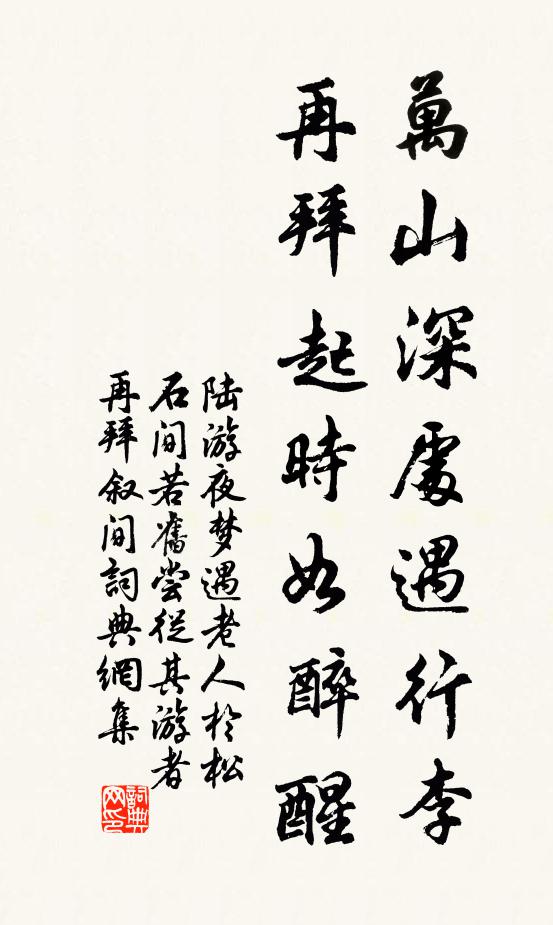 萬山深處遇行李
再拜起時如醉醒
陆游夜梦遇老人於松
石间若舊尝從其游者
再拜叙间詞典網集
詞典网印